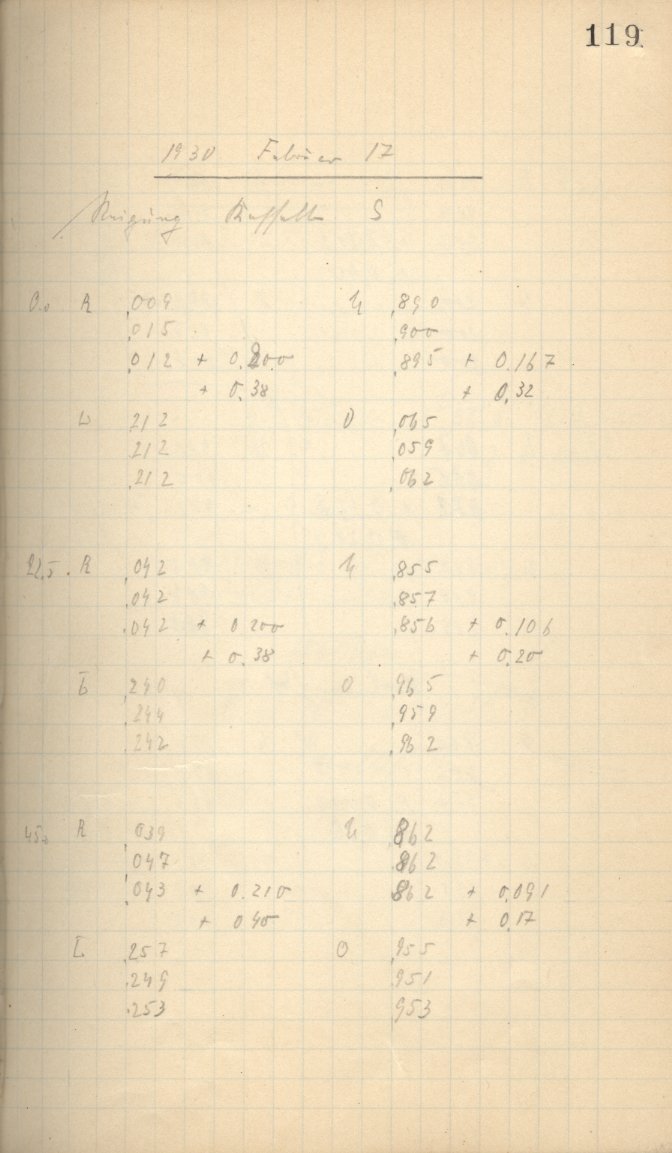 119
1930 Februar 17
Neigung Kassette S
0.0 R ,009 U ,890
,015 ,900
,012 + 0.200 ,895 + 0.167
+ 0.38 + 0.32
L ,212 O ,065
,212 ,059
,212 ,062
22.5 R ,042 U ,855
,042 ,857
,042 + 0.200 ,856 + 0.106
+ 0.38 + 0.20
L ,240 O ,965
,244 ,959
,242 ,962
45.0 R ,039 U ,862
,047 ,862
,043 + 0.210 ,862 + 0.091
+ 0.40 + 0.17
L ,257 O ,955
,249 ,951
,253 ,953